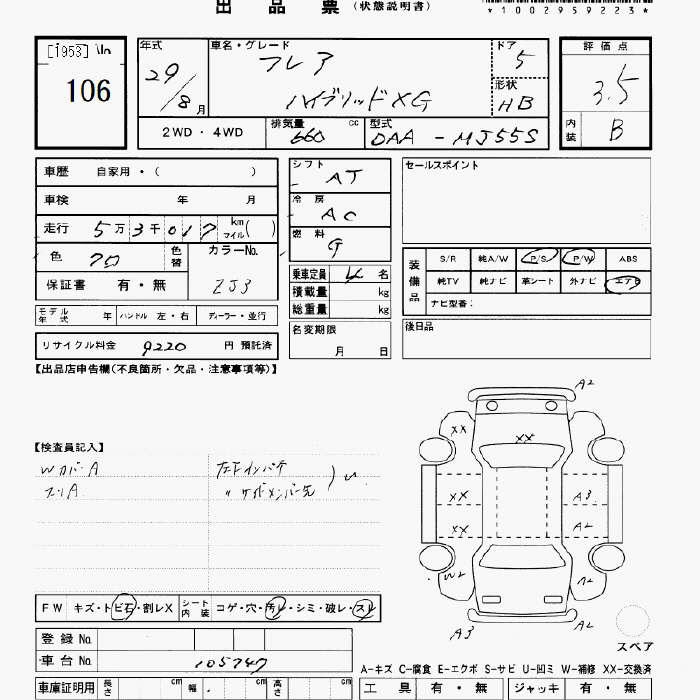 出品票（状態説明書）
*1002959223*
[1953]
106
年式 29/8月
車名・グレード フレア ハイブリッドXG
ドア 5
形状 HB
評価点 3.5
内装 B
2WD・4WD
排気量 660 cc
型式 DAA - MJ55S
車歴 自家用・( )
車検 年 月
走行 5万3千017 km マイル( )
色 クロ 色替
カラーNo. ZJ3
保証書 有・無
シフト AT
冷房 AC
燃料 G
乗車定員 4名
積載量 kg
総重量 kg
名変期限 月 日
セールスポイント
装備品 S/R 純A/W P/S P/W ABS
純TV 純ナビ 革シート 外ナビ エアB
ナビ型番：
後日品
モデル年式 年 ハンドル 左・右 ディーラー・並行
リサイクル料金 9220 円 預託済
【出品店申告欄(不良箇所・欠品・注意事項等)】
【検査員記入】
WカバーA 左Fインパネ
スリA 〃サイドメンバー先
A2
XX XX
XX A3
XX A2
W2 A2
A3 A2
スペア
FW キズ・トビ石・割レX シート内装 コゲ・穴・汚レ・シミ・破レ・スレ
登録No.
車台No. 105747
車庫証明用 長さ cm 幅 cm 高さ cm
A−キズ C−腐食 E−エクボ S−サビ U−凹ミ W−補修 XX−交換済
工具 有・無 ジャッキ 有・無